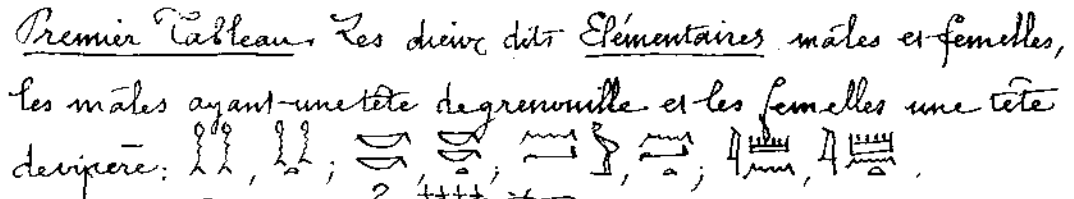 Premier Tableau. Les dieux dits Elémentaires mâles et femelles,
les mâles ayant une tête de grenouille et les femelles une tête
de vipère: 𓎛𓎛, 𓎛𓎛𓏏; 𓎡𓎡, 𓎡𓎡𓏏; 𓇋𓏠𓈖, 𓇋𓏠𓈖𓏏.